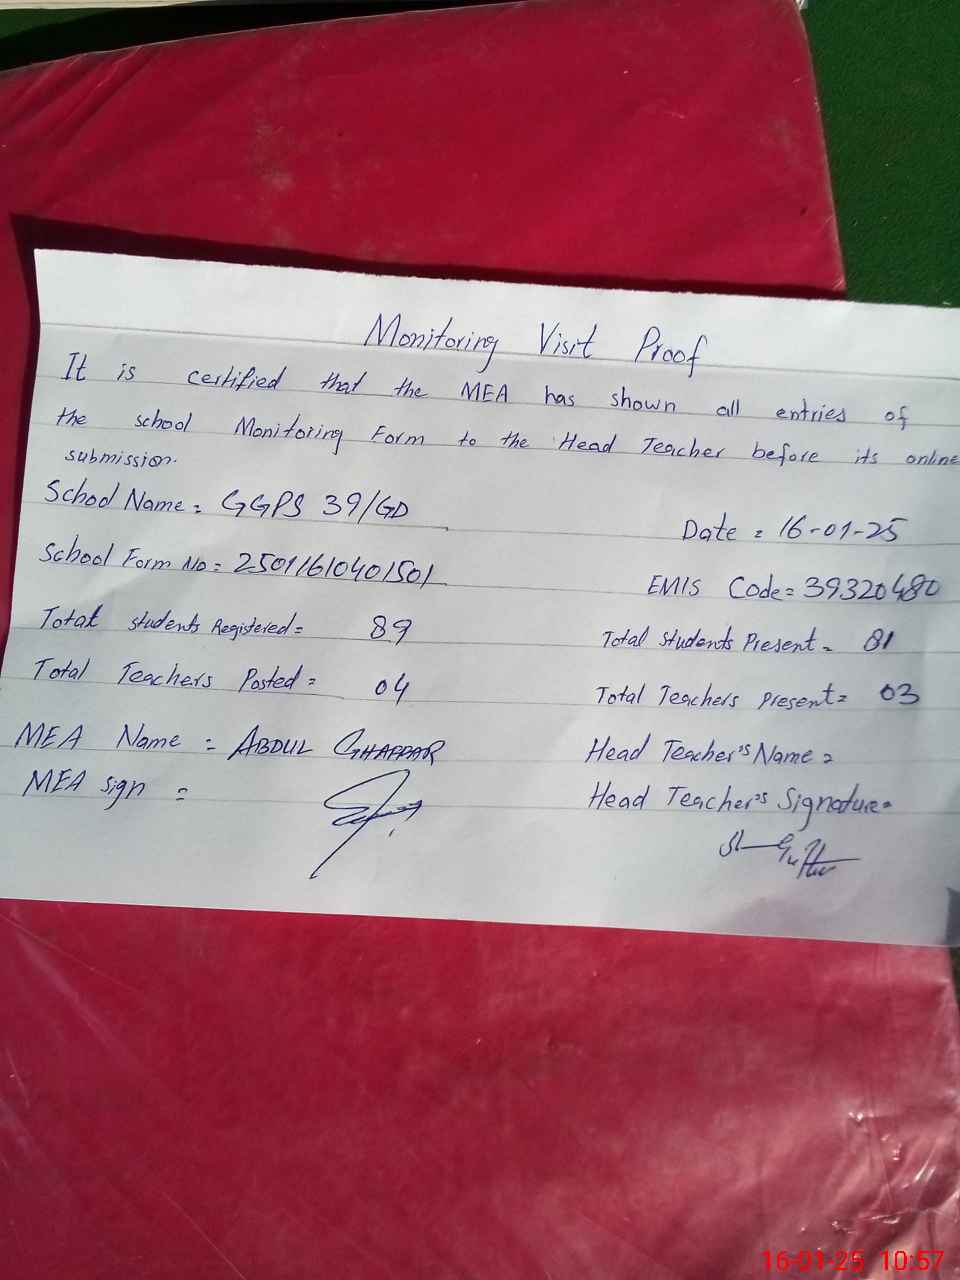 Monitoring Visit Proof
It is certified that the MEA has shown all entries of
the school Monitoring Form to the Head Teacher before its online
submission.
School Name = GGPS 39/GD
Date = 16-01-25
School Form No = 25011610401501
EMIS Code = 39320480
Total students Registered = 89
Total Students Present = 81
Total Teachers Posted = 04
Total Teachers present = 03
MEA Name = ABDUL GHAFFAR
Head Teacher's Name =
MEA sign =
Head Teacher's Signature =
16-01-25 10:57